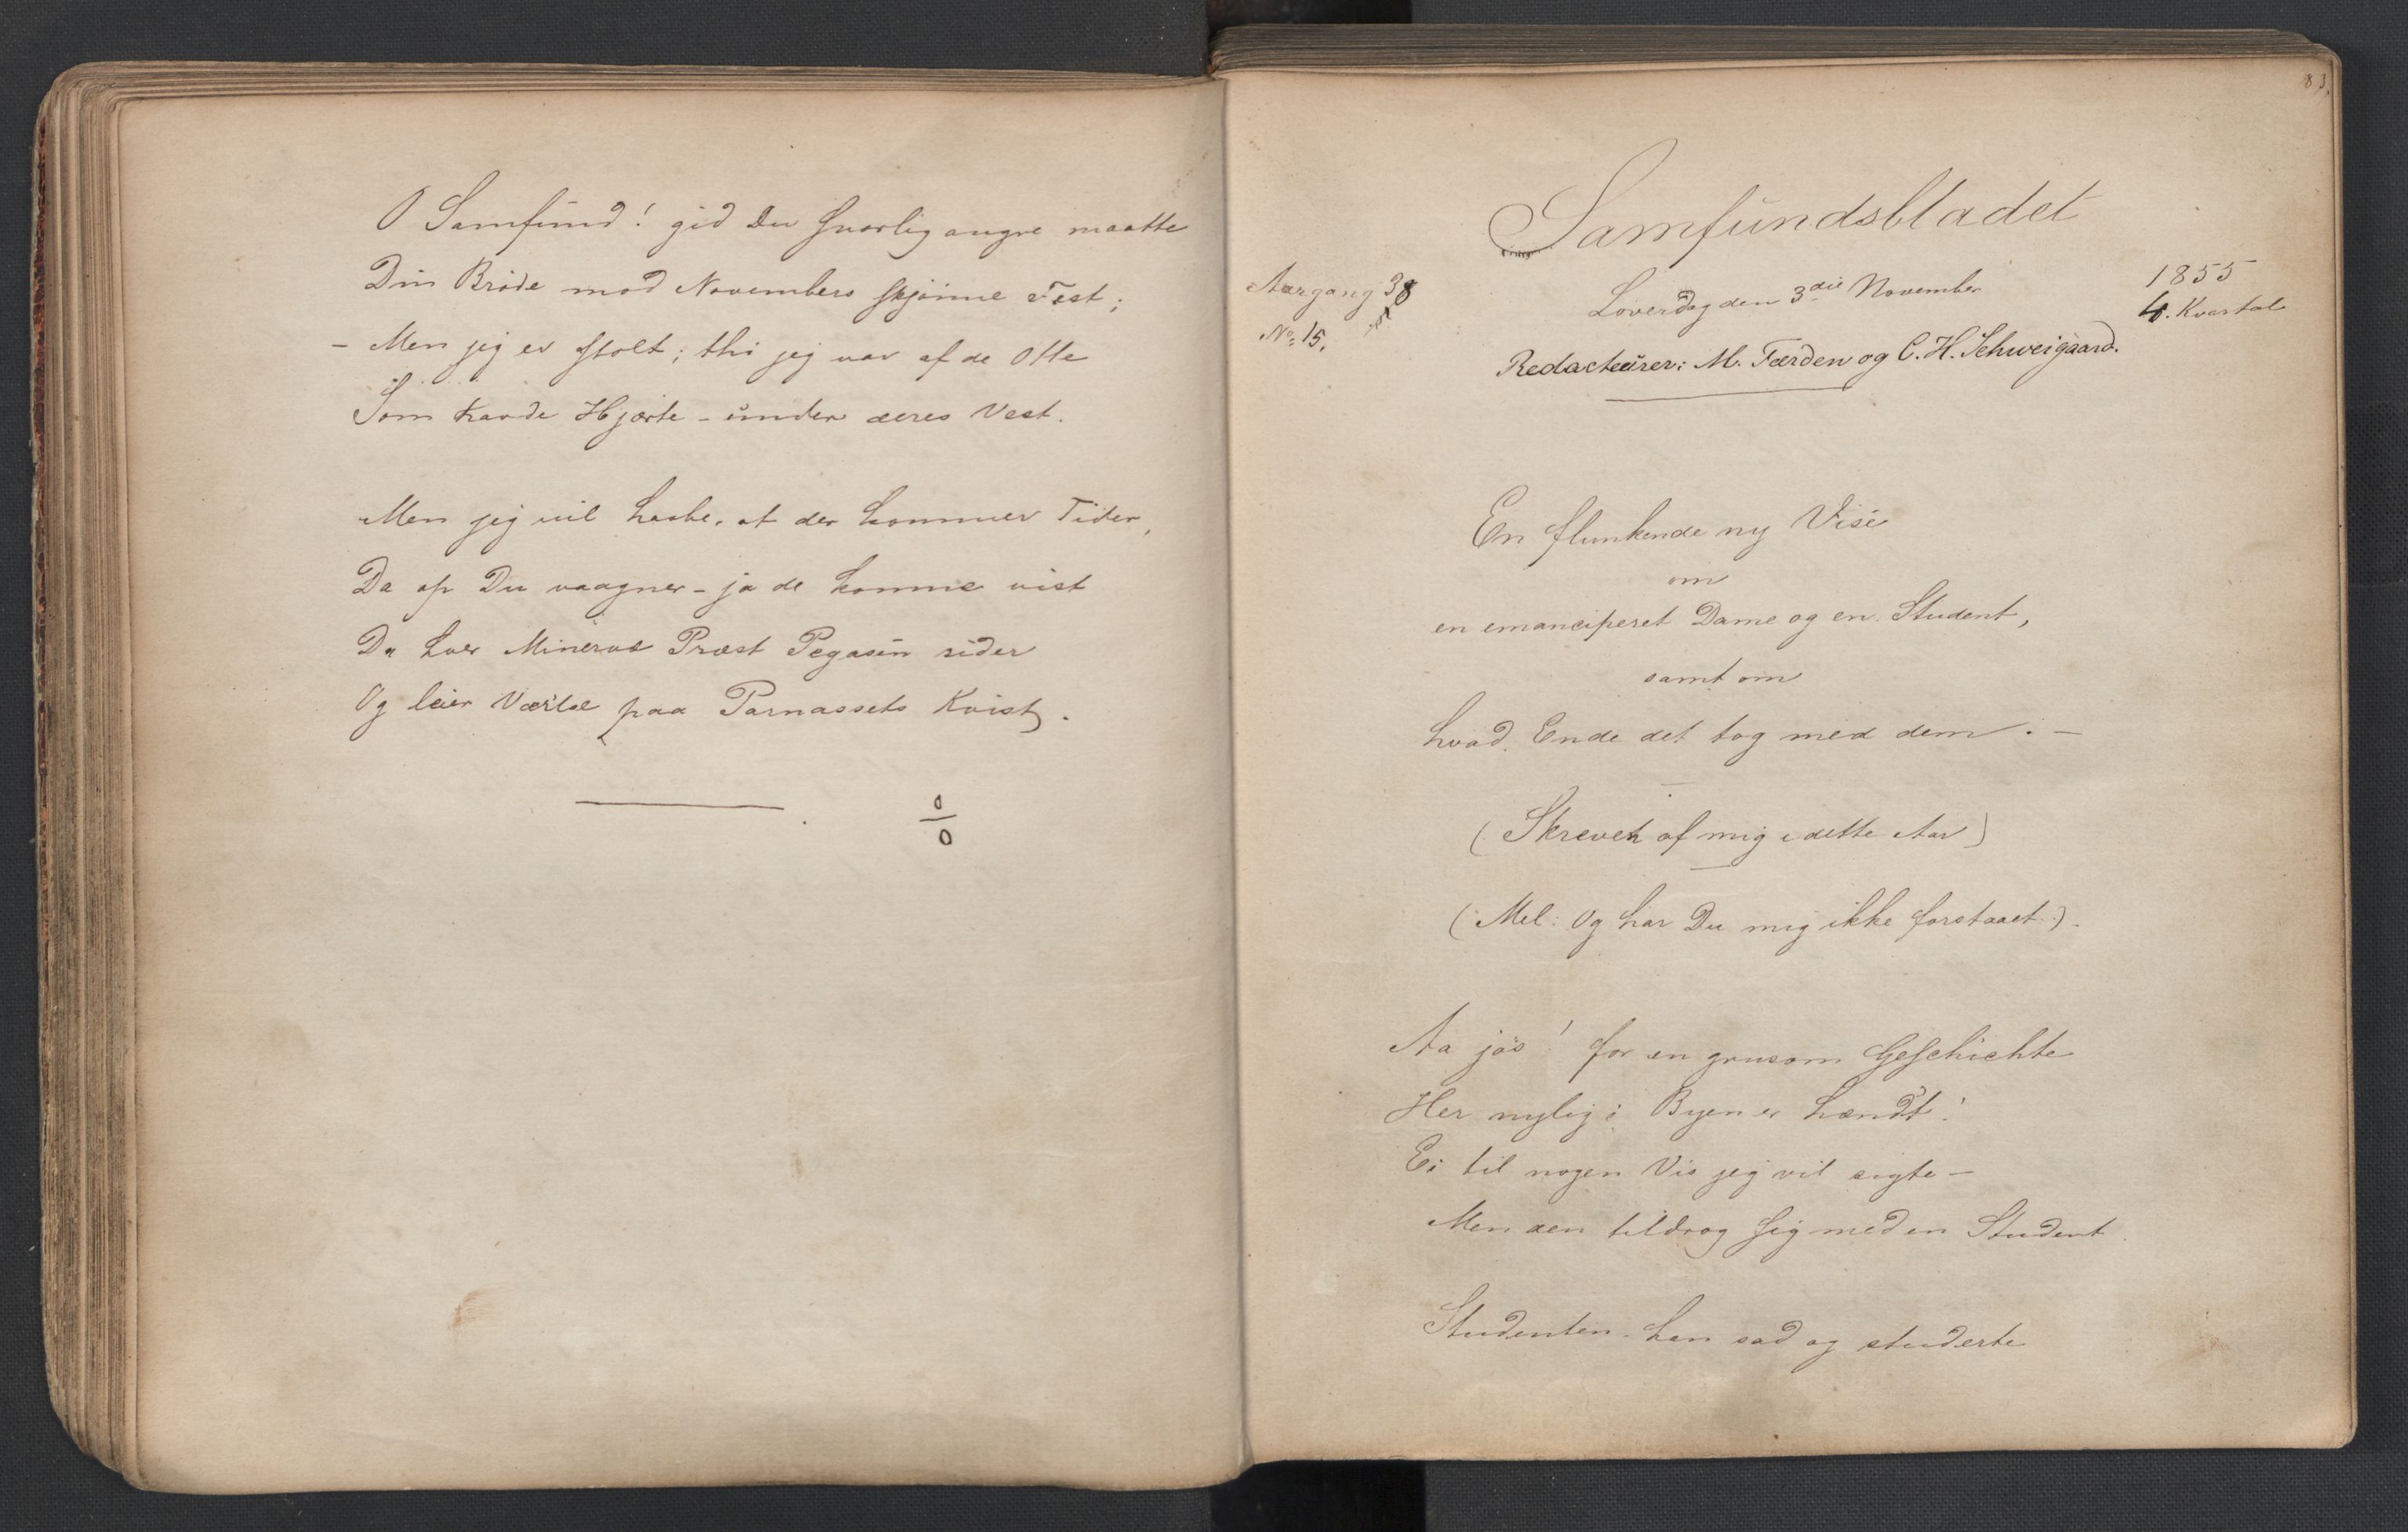 O Samfund! gid Du svarlig angre maatte
Din Bröde mod Novembers skjönne Fest;
- Men jeg er stolt; thi jeg var af de Otte
Som havde Hjerte - under deres Vest.
Men jeg vil haabe, at der kommer Tider,
Da op Du vaagner - ja de komme vist
Da hver Minervæ Præst Pegasen rider
Og leier Værlse paa Parnassets Kvist.
0
0
83.
Samfundsbladet
Aargang 38
No: 15.
Löverdag den 3die November
1855
4. Kvartal
Redacteurer: M. Færden og C. H. Schweigaard.
En flunkende ny Vise
om
en emanciperet Dame og en Student,
samt om
hvad Ende det tog med dem. -
(Skrevet af mig i dette Aar)
(Mel: Og har Du mig ikke forstaaet.).
Aa jös! for en grusom Geschichte
Her nylig i Byen er hændt!
Ei til nogen Vis jeg vil sigte -
Men den tildrog sig med en Student.
Studenten han sad og studerte